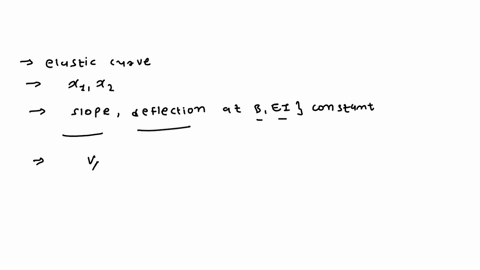 → elastic curve
→ x1, x2
→ slope, deflection at B, EI } constant
⇒ V/